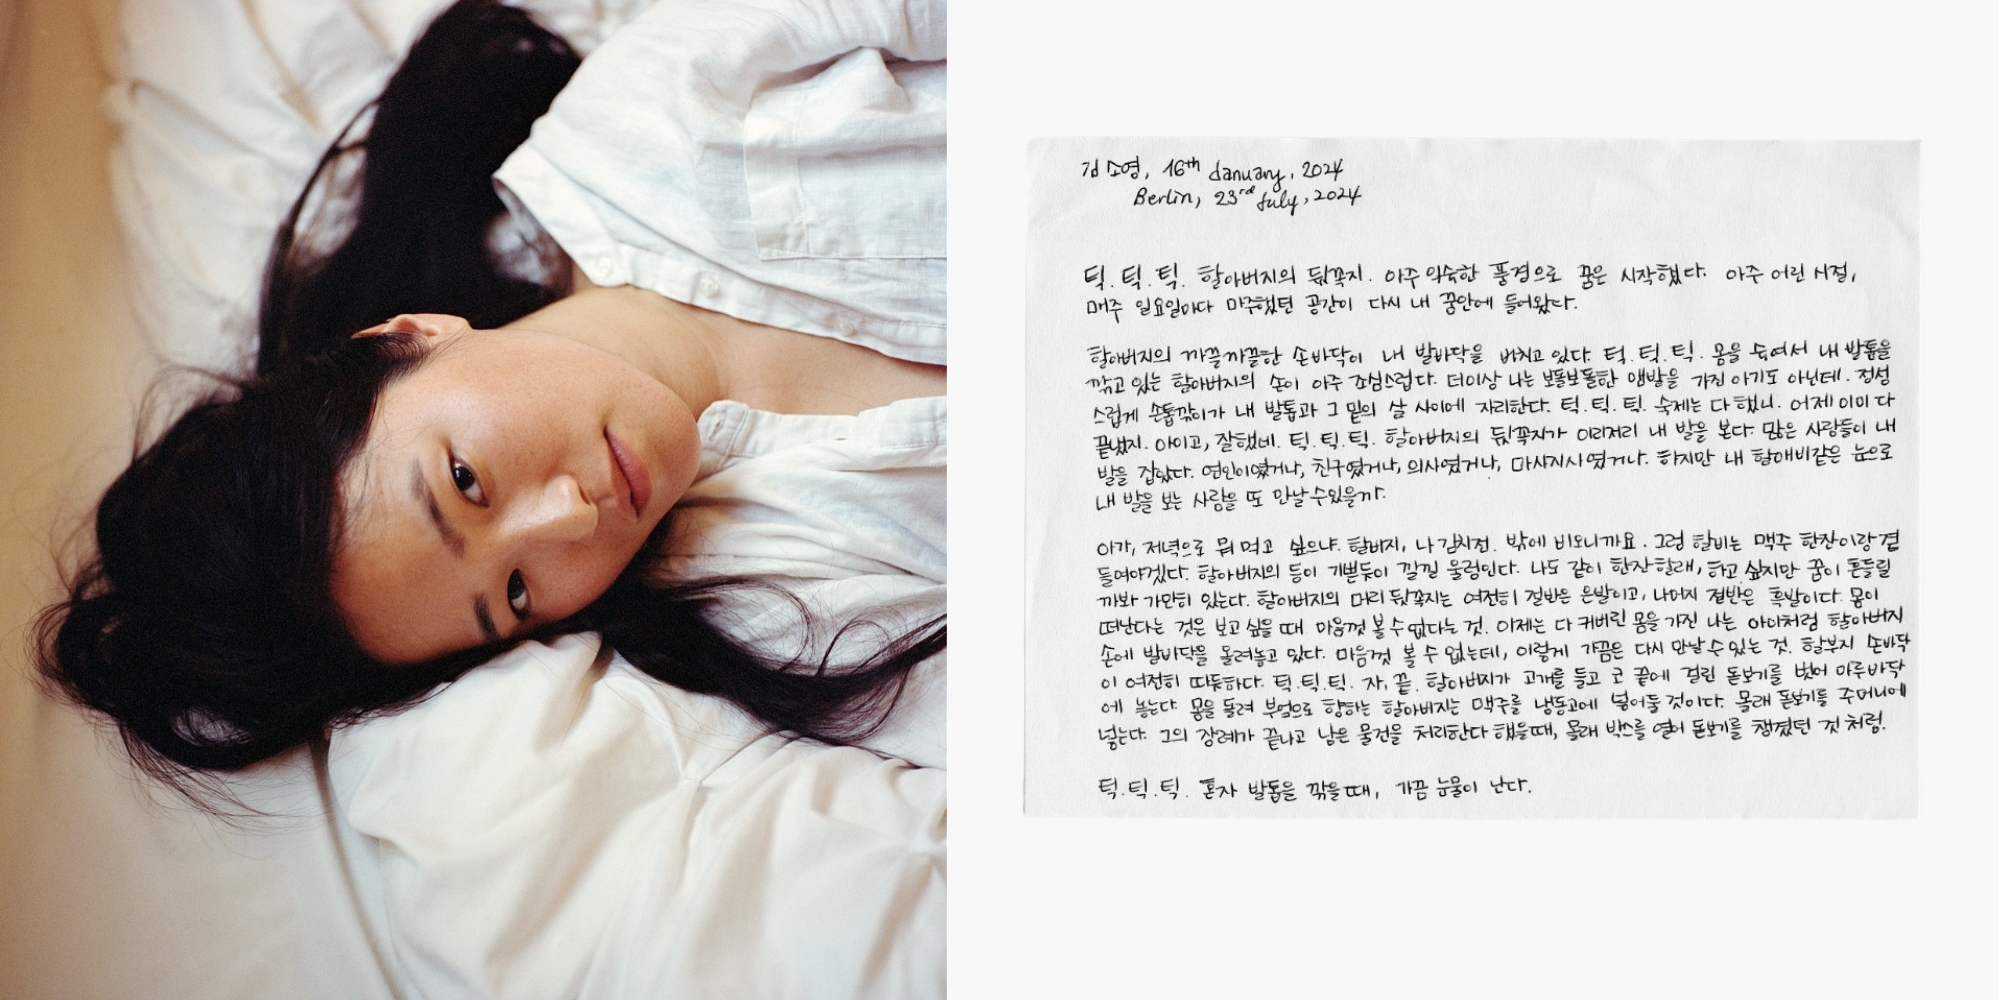 김소영, 16th January, 2024
Berlin, 23rd July, 2024
턱. 턱. 틱. 할아버지의 뒷꼭지. 아주 익숙한 풍경으로 꿈은 시작했다. 아주 어린 시절,
매주 일요일마다 마주했던 공간이 다시 내 꿈안에 들어왔다.
할아버지의 까끌까끌한 손바닥이 내 발바닥을 버치고 있다. 턱. 틱. 틱. 몸을 숙여서 내 발톱을
깎고 있는 할아버지의 손이 아주 조심스럽다. 더이상 나는 보돌보돌한 맨발을 가진 아기도 아닌데. 정성
스럽게 손톱깎이가 내 발톱과 그 밑의 살 사이에 자리한다. 턱. 틱. 틱. 숙제는 다 했니. 어제 이미 다
끝냈지. 아이고, 잘했네. 틱. 틱. 틱. 할아버지의 뒷꼭지가 이리저리 내 발을 본다. 많은 사람들이 내
발을 잡았다. 연인이였거나, 친구였거나, 의사였거나, 마사지사였거나. 하지만 내 할애비같은 눈으로
내 발을 보는 사람을 또 만날 수 있을까.
아가, 저녁으로 뭐 먹고 싶으냐. 할버지, 나 김치전. 밖에 비오니까요. 그럼 할비는 맥주 한잔이랑 곁
들여야겠다. 할아버지의 등이 기쁜듯이 낄낄 울렁인다. 나도 같이 한잔 할래, 하고 싶지만 꿈이 흔들릴
까봐 가만히 있는다. 할아버지의 머리 뒷꼭지는 여전히 절반은 은발이고, 나머지 절반은 흑발이다. 몸이
떠난다는 것은 보고 싶을 때 마음껏 볼 수 없다는 것. 이제는 다 커버린 몸을 가진 나는 아이처럼 할아버지
손에 발바닥을 올려놓고 있다. 마음껏 볼 수 없는데, 이렇게 가끔은 다시 만날 수 있는 것. 할부지 손바닥
이 여전히 따듯하다. 턱. 틱. 틱. 자, 끝. 할아버지가 고개를 들고 코 끝에 걸린 돋보기를 벗어 마루바닥
에 놓는다. 몸을 돌려 부엌으로 향하는 할아버지는 맥주를 냉동고에 넣어둘 것이다. 몰래 돋보기를 주머니에
넣는다. 그의 장례가 끝나고 남은 물건을 처리한다 했을때, 몰래 박스를 열어 돋보기를 챙겼던 것 처럼.
턱. 틱. 틱. 혼자 발톱을 깎을때, 가끔 눈물이 난다.